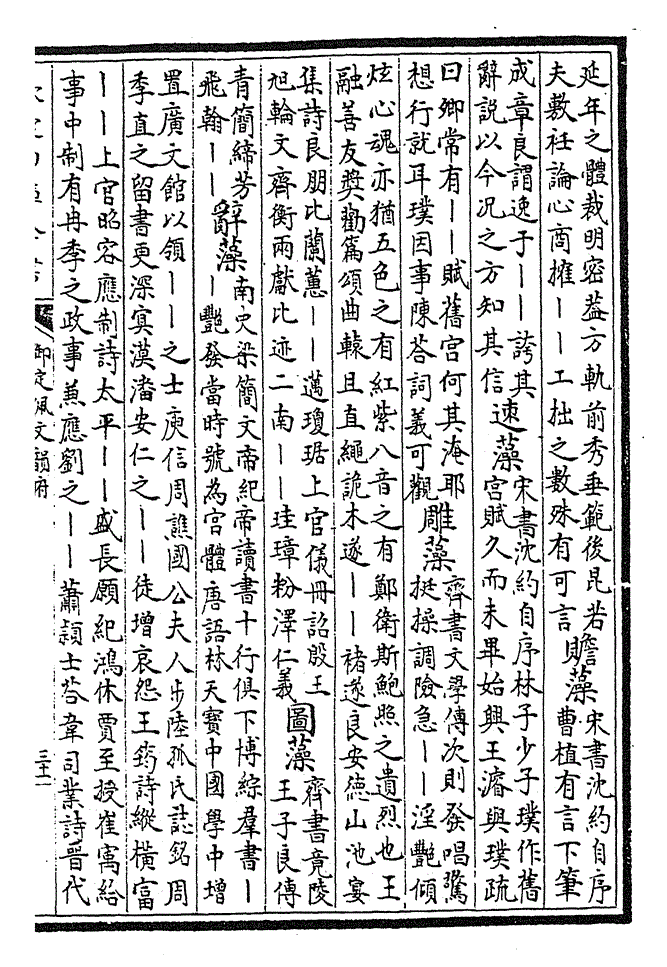 延年之體裁明密葢方軌前秀垂範後昆若
夫敷衽論心商搉丨丨工拙之數殊有可言
贍藻
宋書沈約自序
曹植有言下筆
成章良謂逸于丨丨誇其
辭說以今況之方知其信
速藻
宋書沈約自序林子少子璞作舊
宮賦久而未畢始興王濬與璞疏
曰卿常有丨丨賦舊宮何其淹耶
想行就耳璞因事陳荅詞義可觀
雕藻
齊書文學傳次則發唱驚
挺操調險急丨丨淫艷傾
炫心魂亦猶五色之有紅紫八音之有鄭衛斯鮑照之遺烈也王
融善友奬勸篇頌曲轅且直繩詭木遂丨丨褚遂良安德山池宴
集詩良朋比蘭蕙丨丨邁瓊琚上官儀冊詔殷王
旭輪文齊衡兩獻比迹二南丨丨珪璋粉澤仁義
圖藻
齊書竟陵
王子良傳
青簡締芳
飛翰丨丨
辭藻
南史梁簡文帝紀帝讀書十行俱下博綜羣書丨
丨艷發當時號為宮體唐語林天寶中國學中增
置廣文館以領丨丨之士庾信周譙國公夫人步陸孤氏誌銘周
季直之留書更深寞漠潘安仁之丨丨徒增哀怨王筠詩縱橫富
丨丨上官昭容應制詩太平丨丨盛長願紀鴻休賈至授崔寓給
事中制有冉季之政事兼應劉之丨丨蕭頴士荅韋司業詩晉代
御定佩文韻府
三十一